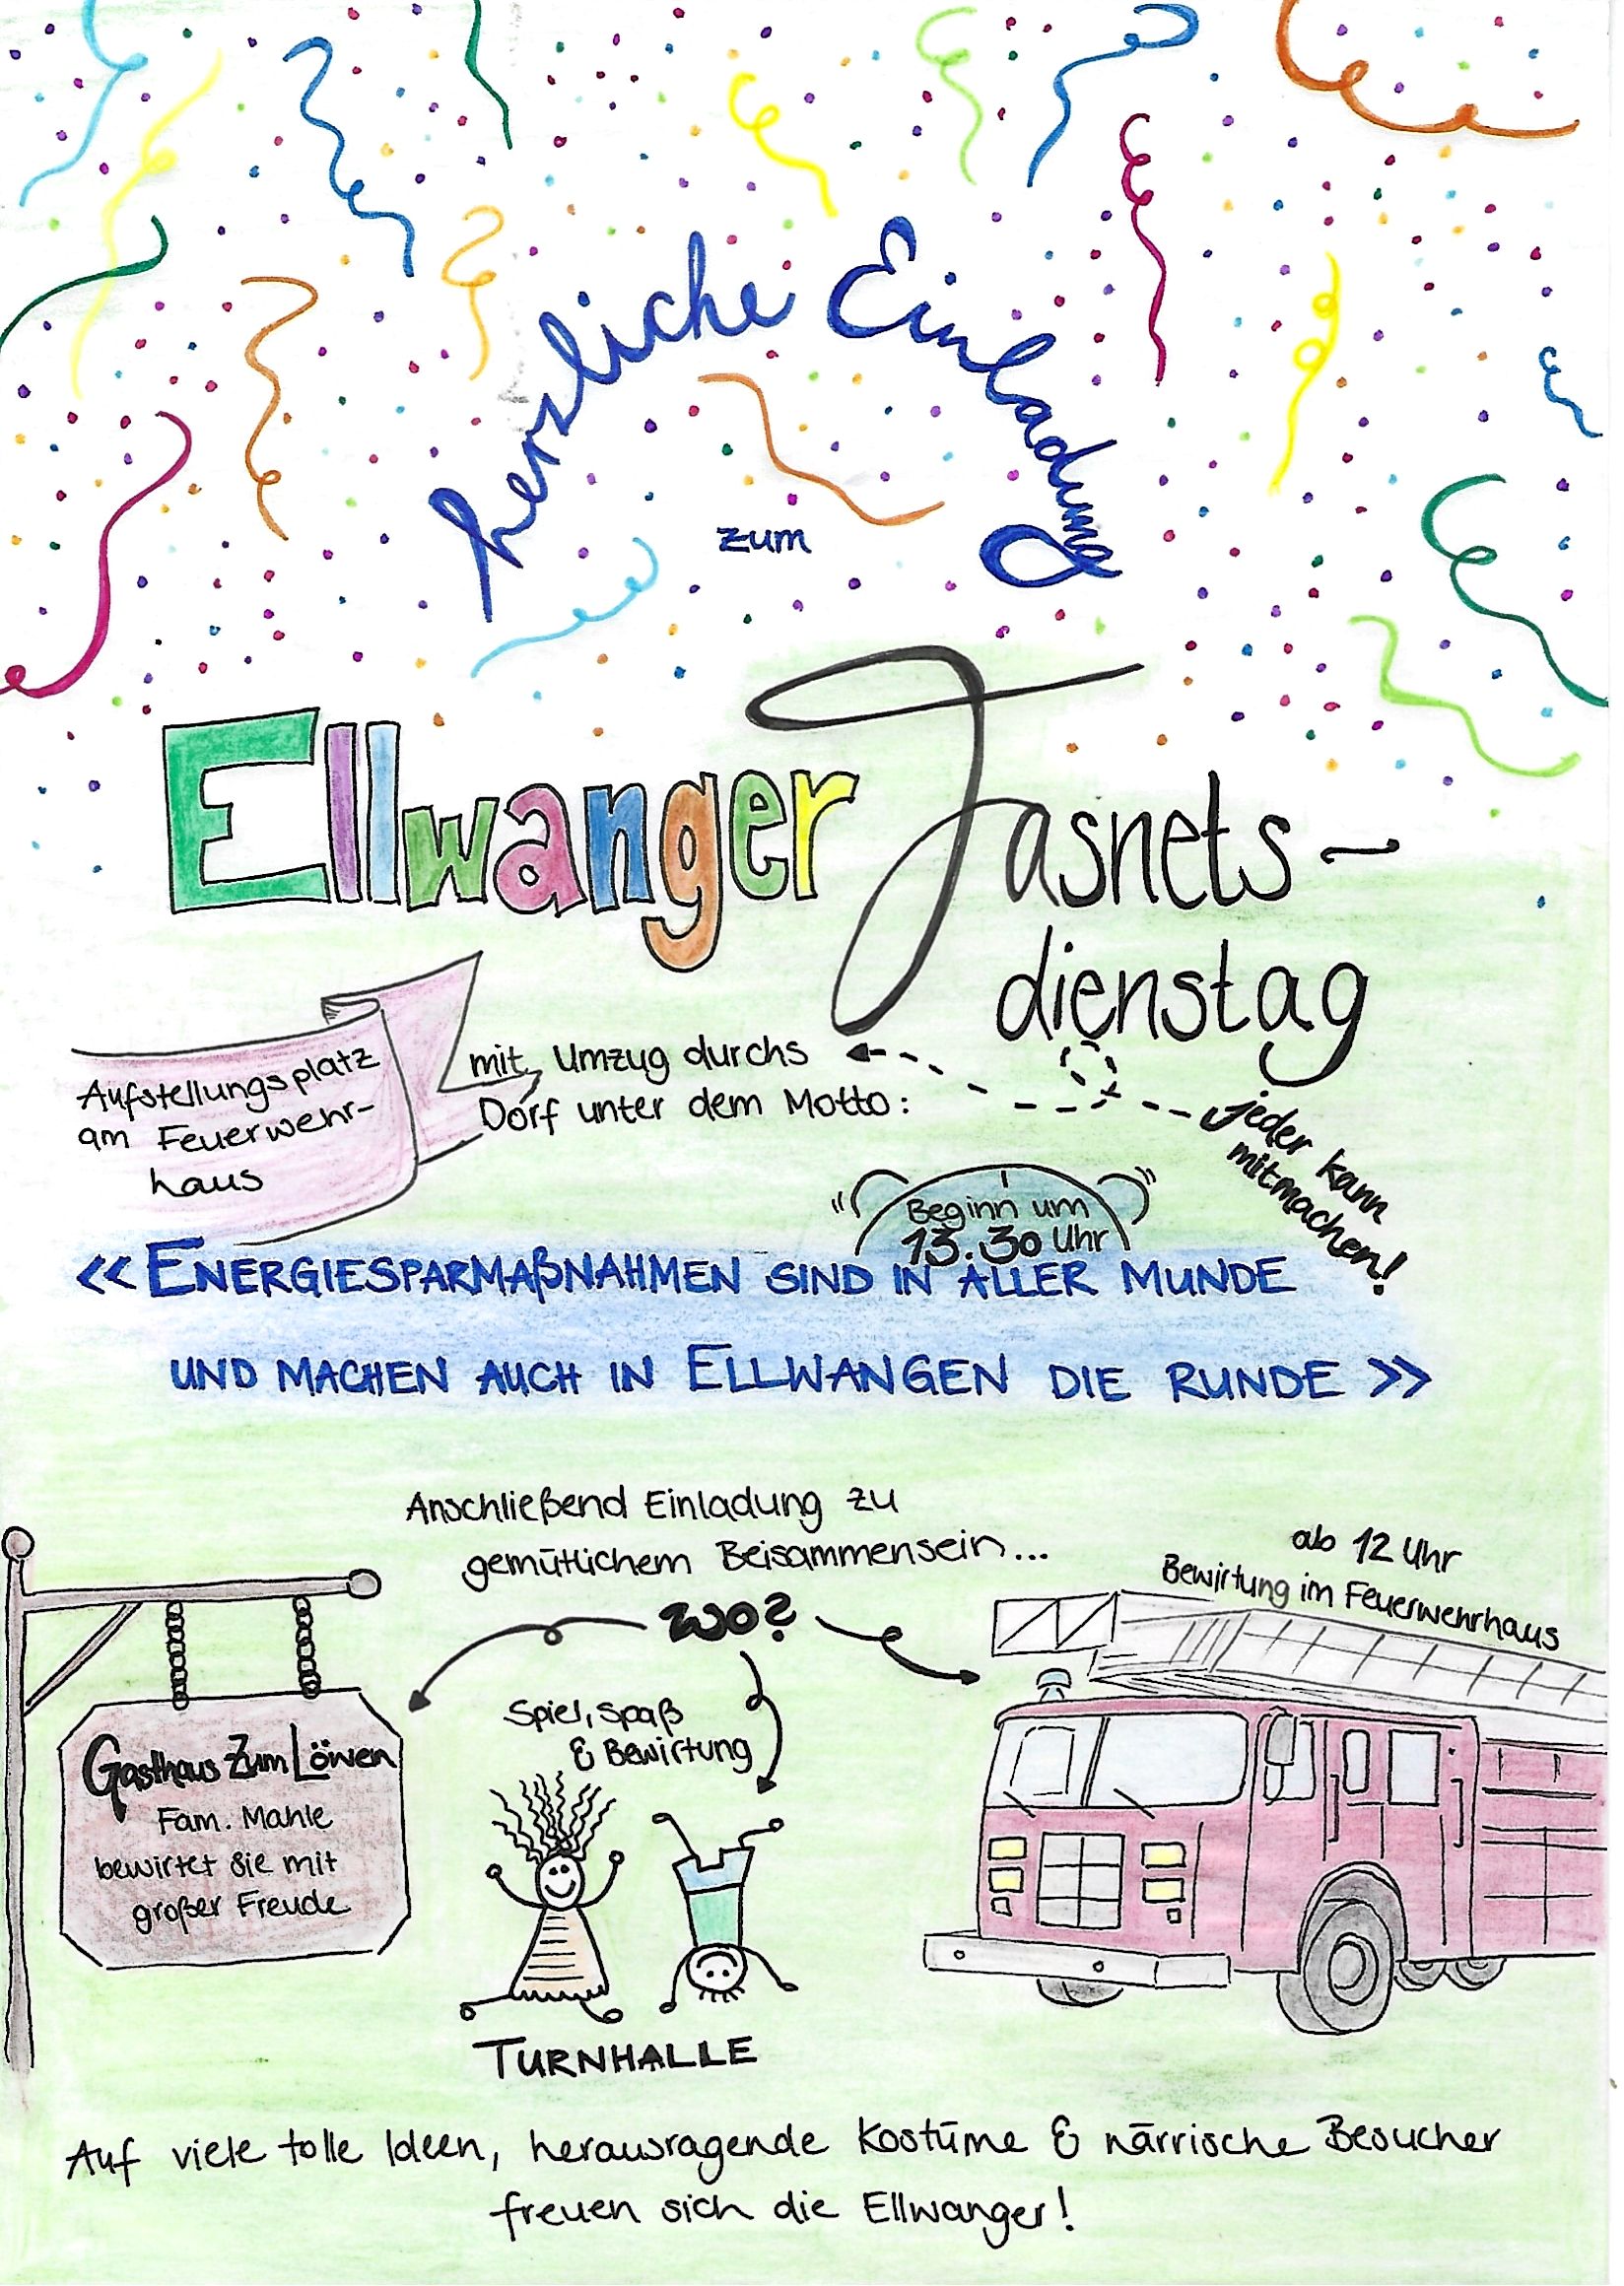 herzliche Einladung
zum
Ellwanger Fasnets-
dienstag
Aufstellungsplatz
am Feuerwehr-
haus
mit Umzug durchs
Dorf unter dem Motto:
jeder kann
mitmachen!
Beginn um
13.30 Uhr
<< ENERGIESPARMAßNAHMEN SIND IN ALLER MUNDE
UND MACHEN AUCH IN ELLWANGEN DIE RUNDE >>
Anschließend Einladung zu
gemütlichem Beisammensein...
WO?
ab 12 Uhr
Bewirtung im Feuerwehrhaus
Spiel, Spaß
& Bewirtung
Gasthaus Zum Löwen
Fam. Mahle
bewirtet Sie mit
großer Freude
TURNHALLE
Auf viele tolle Ideen, herausragende Kostüme & närrische Besucher
freuen sich die Ellwanger!